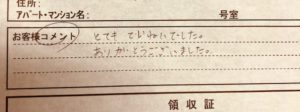 住所:
アパート・マンション名: 号室
お客様コメント
とても ていねいでした。
ありがとうございました。
領収証